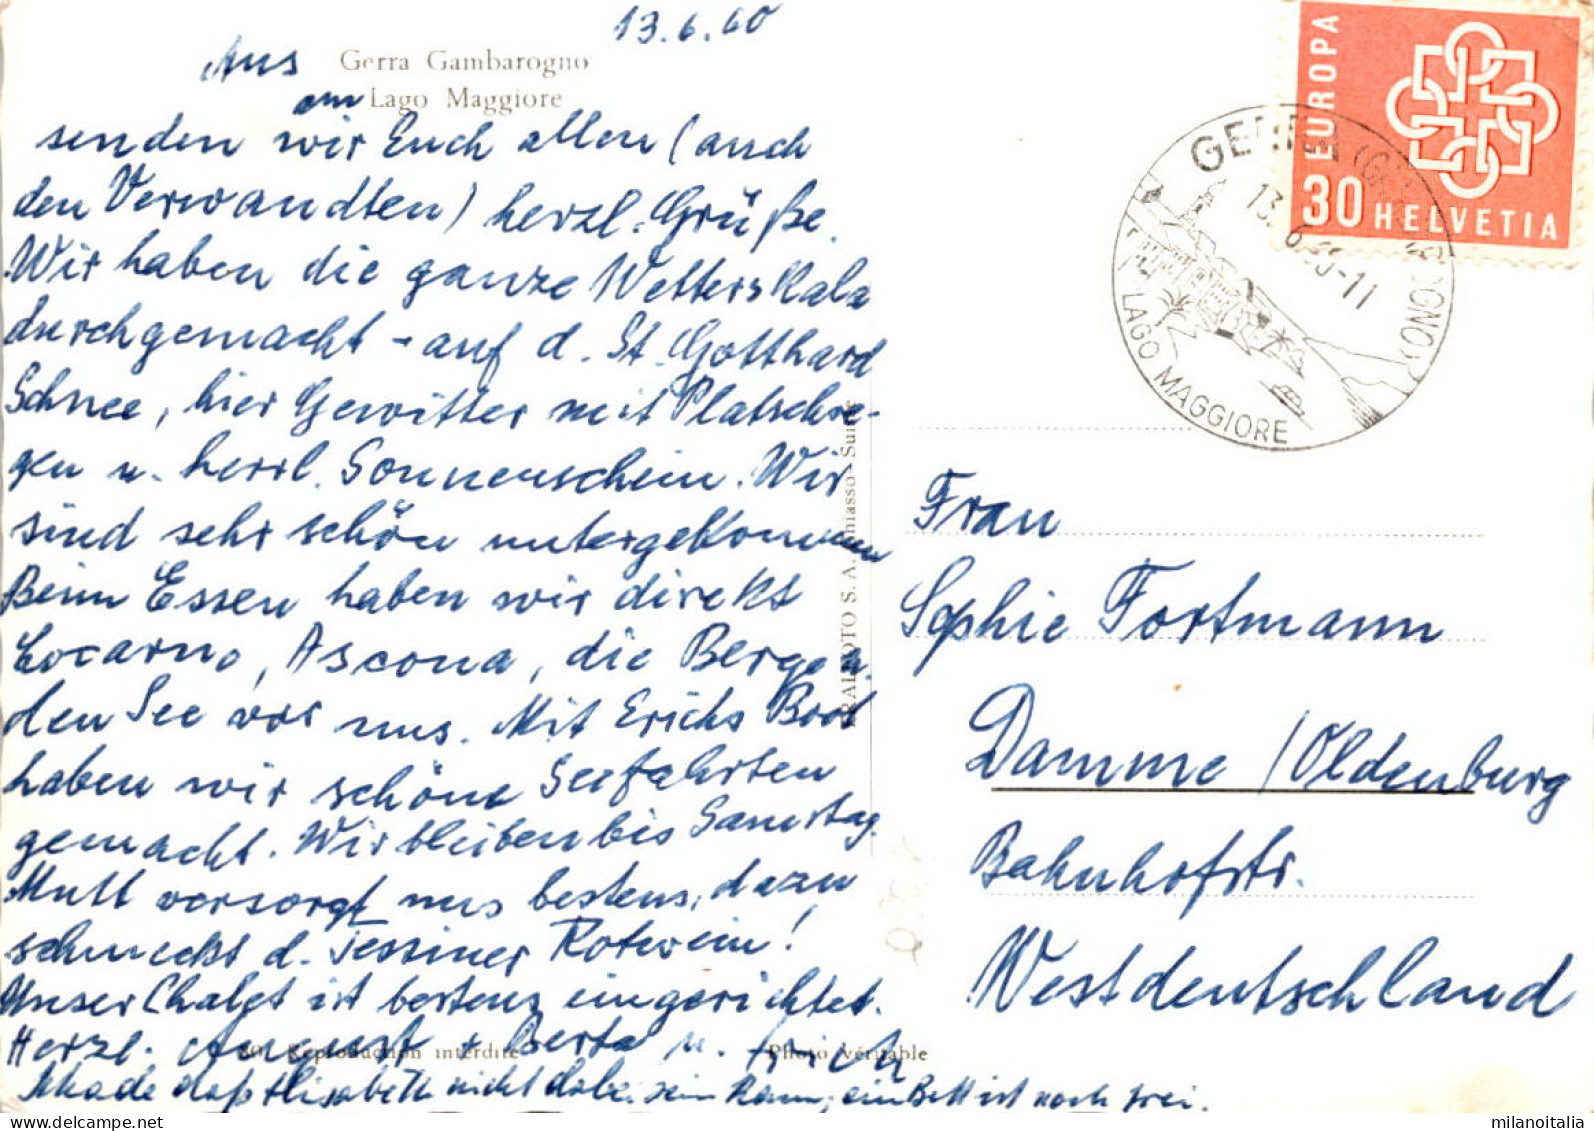 13.6.60
Aus Gerra Gambarogno
am Lago Maggiore
senden wir Euch allen (auch
den Verwandten) herzl. Grüße.
Wir haben die ganze Wetterskala
durchgemacht - auf d. St. Gotthard
Schnee, hier Gewitter mit Platschre-
gen u. herrl. Sonnenschein. Wir
sind sehr schön untergekommen
Beim Essen haben wir direkt
Locarno, Ascona, die Berge u.
den See vor uns. Mit Erichs Boot
haben wir schöne Seefahrten
gemacht. Wir bleiben bis Samstag.
Mutt versorgt uns bestens, dazu
schmeckt d. Tessiner Rotwein!
Unser Chalet ist bestens eingerichtet.
Herzl. August + Berta u. Erich
Schade daß Elisabeth nicht dabei sein kann, ein Bett ist noch frei.
Reproduction interdite
Photo véritable
FOTO S. A. Chiasso - Suisse
EUROPA
30 HELVETIA
GERRA (GAMBAROGNO)
13. 6. 60-11
LAGO MAGGIORE
Frau
Sophie Fortmann
Damme / Oldenburg
Bahnhofstr.
Westdeutschland
milanoitalia